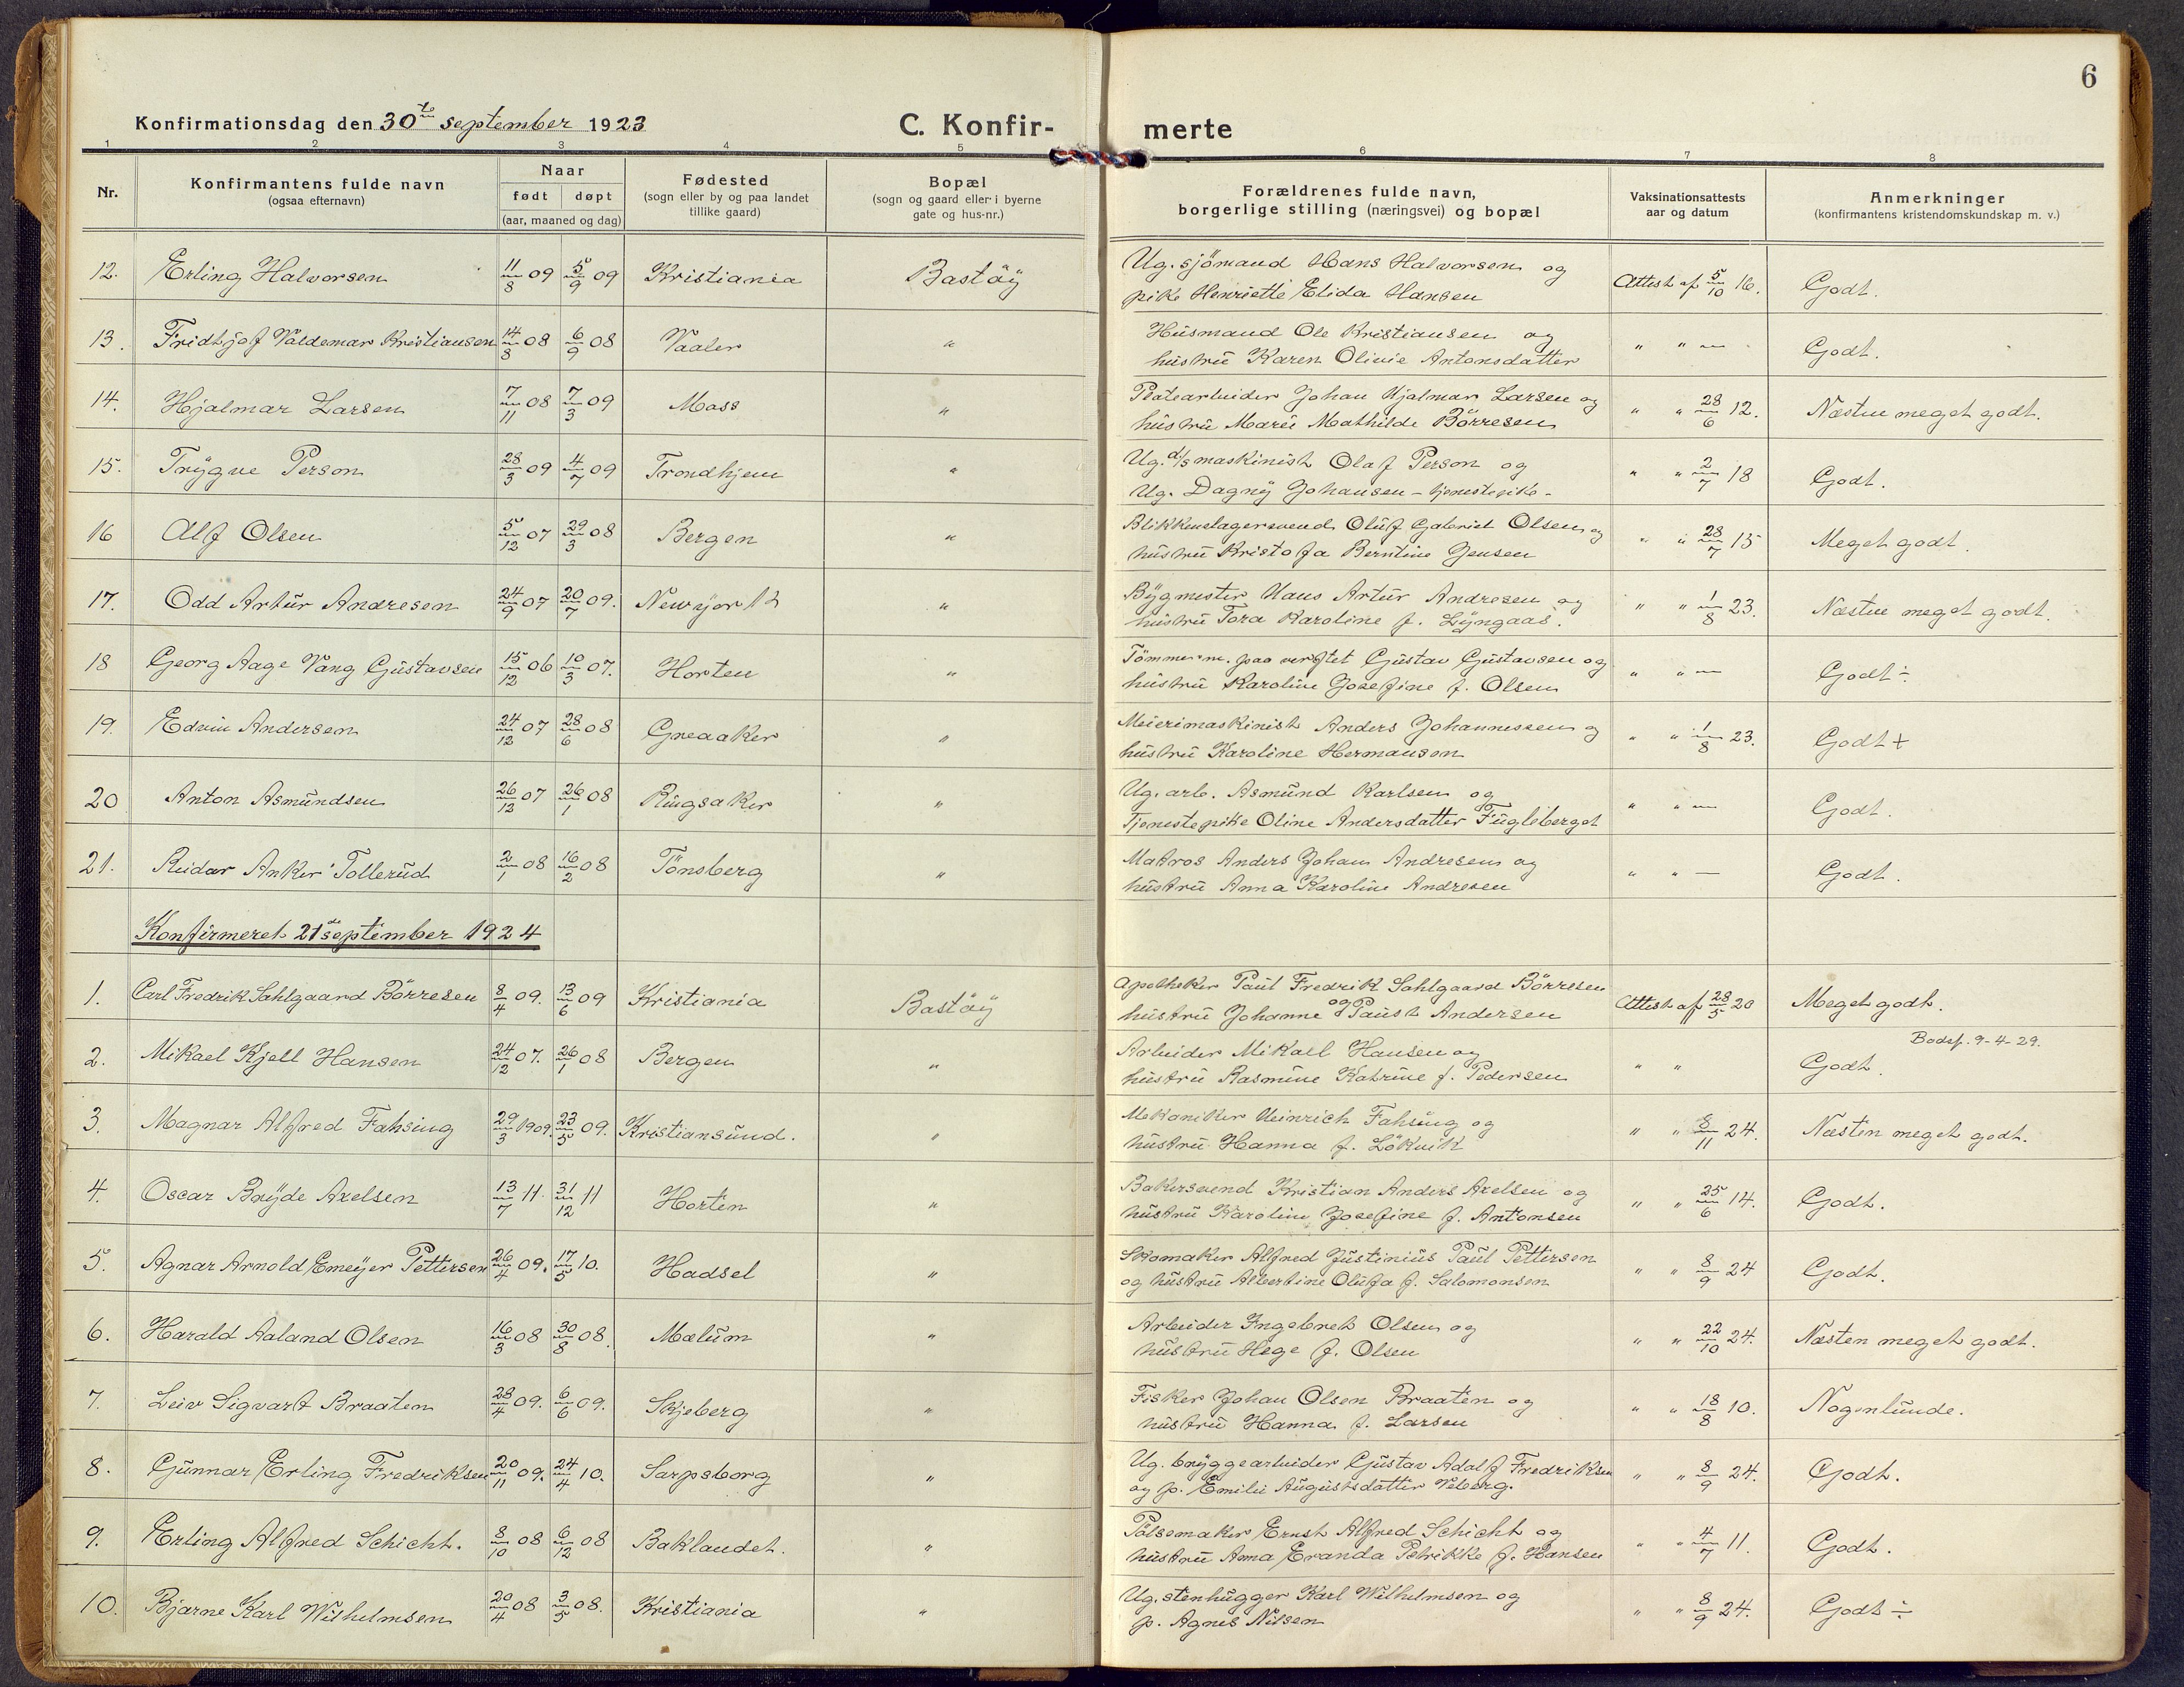 6
Konfirmationsdag den 30te september 1923
C. Konfir-
merte
1 2 3 4 5 6 7 8
Nr.
Konfirmantens fulde navn
(ogsaa efternavn)
Naar
født døpt
(aar, maaned og dag)
Fødested
(sogn eller by og paa landet
tillike gaard)
Bopæl
(sogn og gaard eller i byerne
gate og hus-nr.)
Forældrenes fulde navn,
borgerlige stilling (næringsvei) og bopæl
Vaksinationsattests
aar og datum
Anmerkninger
(konfirmantens kristendomskundskap m. v.)
12. Erling Halvorsen 11/8 09 5/9 09 Kristiania Bastöÿ Ug. sjömand Hans Halvorsen og
pike Henriette Elida Hansen Attest af 5/10 16. Godt.
13. Fridtjof Valdemar Kristiansen 14/8 08 6/9 08 Vaaler " Husmand Ole Kristiansen og
hustru Karen Olivie Antonsdatter " " — Godt.
14. Hjalmar Larsen 7/11 08 7/3 09 Moss " Platearbeider Johan Hjalmar Larsen og
hustru Marie Mathilde Börresen " " 28/6 12. Næsten meget godt.
15. Trygve Person 28/3 09 4/7 09 Trondhjem " Ug. d/s maskinist Olaf Person og
Ug. Dagny Johansen - tjenestepike - " " 2/7 18 Godt.
16 Alf Olsen 5/12 07 29/3 08 Bergen " Blikkenslagersvend Oluf Gabriel Olsen og
hustru Kristofa Berntine Jensen " " 28/7 15 Meget godt.
17. Odd Artur Andresen 24/9 07 20/7 09. Newyork " Bygmester Hans Artur Andresen og
hustru Tora Karoline f. Lyngaas. " " 1/8 23. Næsten meget godt.
18 Georg Aage Vang Gustavsen 15/12 06 10/3 07. Horten " Tömmerm. paa verftet Gustav Gustavsen og
hustru Karoline Josefine f. Olsen " " — Godt ÷
19. Edvin Andersen 24/12 07 28/6 08 Greaaker " Meierimaskinist Anders Johannessen og
hustru Karoline Hermansen " " 1/8 23. Godt +
20 Anton Asmundsen 26/12 07 26/1 08 Ringsaker " Ug. arb. Asmund Karlsen og
Tjenestepike Oline Andersdatter Fugleberget " " — Godt.
21. Reidar Anker Tollerud 2/1 08 16/2 08 Tönsberg " Matros Anders Johan Andresen og
hustru Anna Karoline Andresen " " — Godt.
Konfirmeret 21de september 1924
1. Carl Fredrik Sahlgaard Börresen 8/4 09. 13/6 09 Kristiania Bastöÿ Apotheker Paul Fredrik Sahlgaard Börresen
og
hustru Johanne Paust Andersen Attest af 28/5 20 Meget godt.
2. Mikael Kjell Hansen 24/12 07. 26/1 08 Bergen " Arbeider Mikael Hansen og
hustru Rasmine Katrine f. Pedersen " " Bodsf. 9-4-29.
Godt.
3. Magnar Alfred Fahsing 29/3 1909. 23/5 09. Kristiansund. " Mekaniker Heinrich Fahsing og
hustru Hanna f. Lökvik " " 8/11 24. Næsten meget godt.
4. Oscar Bryde Axelsen 13/7 11. 31/12 11 Horten " Bakersvend Kristian Anders Axelsen og
hustru Karoline Josefine f. Antonsen " " 25/6 14. Godt.
5. Agnar Arnold Emeyer Pettersen 26/4 09. 17/5 10. Hadsel " Skomaker Alfred Justinius Paul Pettersen
og hustru Albertine Olufa f. Salomonsen " " 8/9 24 Godt.
6. Harald Aaland Olsen 16/3 08 30/8 08. Mælum " Arbeider Ingebret Olsen og
hustru Hege f. Olsen " " 22/10 24. Næsten meget godt.
7. Leiv Sigvart Braaten 28/4 09. 6/6 09. Skjeberg " Fisker Johan Olsen Braaten og
hustru Hanna f. Larsen " " 18/8 10. Nogenlunde.
8. Gunnar Erling Fredriksen 20/11 09. 24/4 10. Sarpsborg " Ug. bryggearbeider Gustav Adolf Fredriksen
og p. Emilie Augustsdatter Veberg. " " 8/9 24. Godt.
9. Erling Alfred Schicht. 8/10 08 6/12 08 Baklandet. " Pölsemaker Ernst Alfred Schicht og
hustru Anna Eranda Petrikke f. Hansen " " 4/7 11. Godt.
10. Bjarne Karl Wilhelmsen 20/4 08 3/5 08. Kristiania " Ug. stenhugger Karl Wilhelmsen og
p. Agnes Nilsen " " 8/9 24. Godt ÷